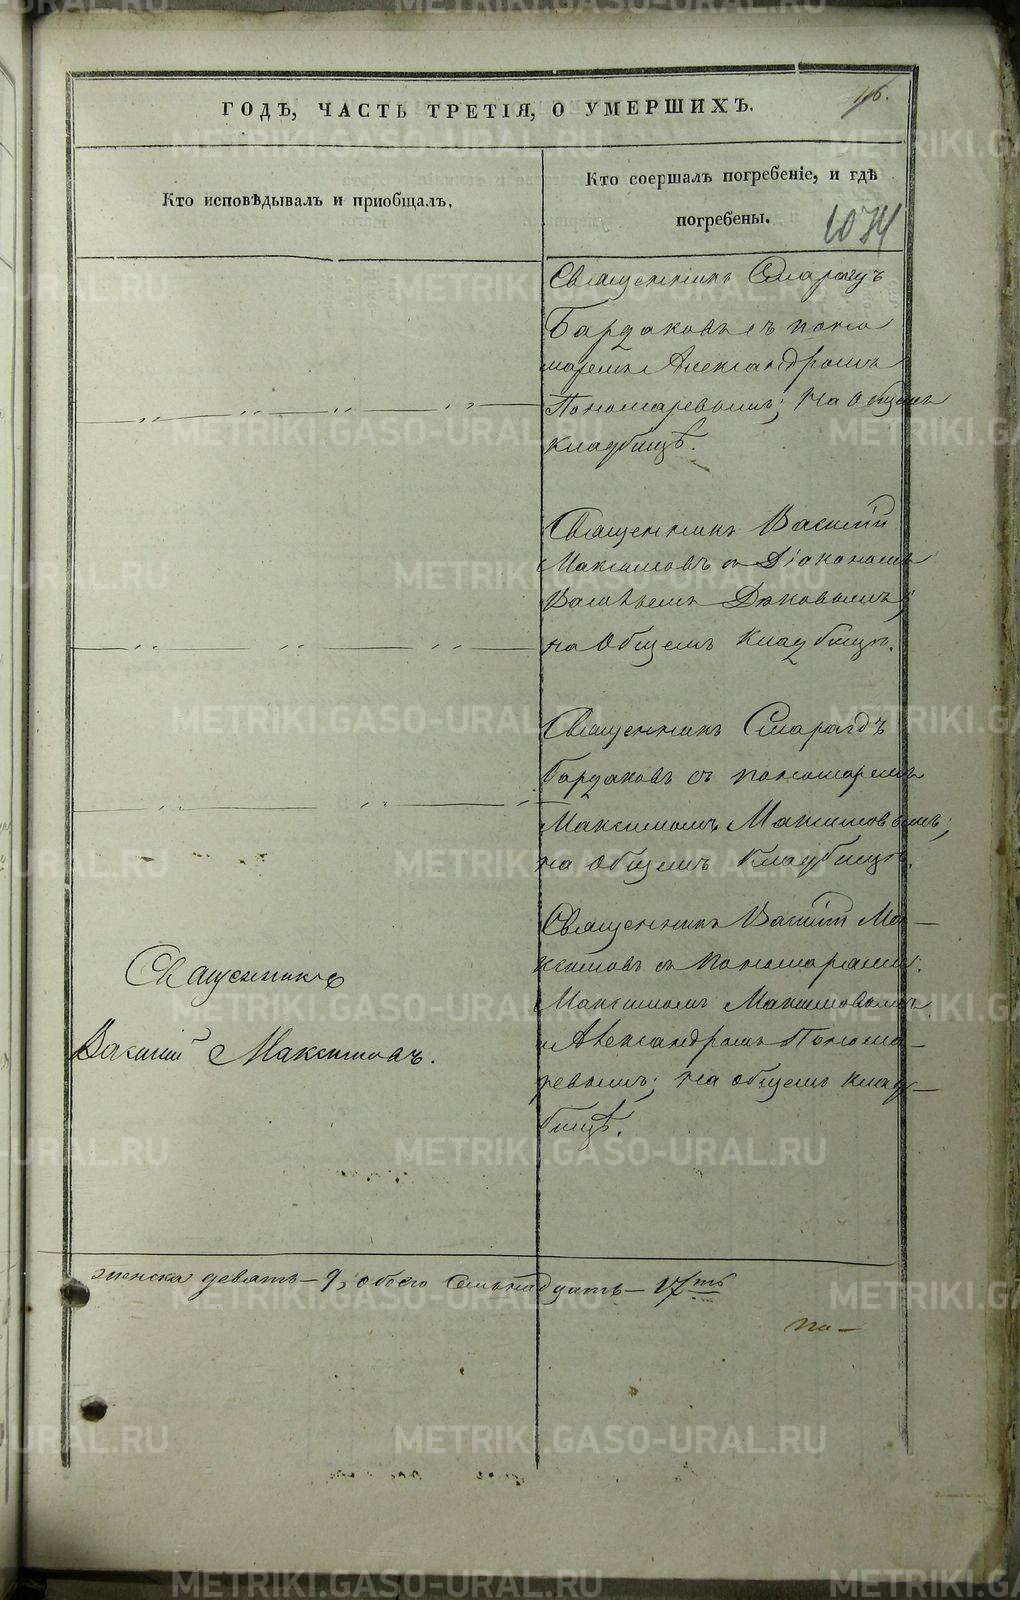 ГОДѢ, ЧАСТЬ ТРЕТІЯ, О УМЕРШИХЪ.
Кто исповѣдывалъ и приобщалъ.
Кто соершалъ погребеніе, и гдѣ
погребены.
1074
Священникъ Смарагдъ
Бардаковъ съ поно
маремъ Александромъ
Пономаревымъ; на общемъ
кладбищѣ.
Священникъ Василій
Максимовъ съ Діакономъ
Дьковымъ;
на Общемъ Кладбищѣ.
Священникъ Смарагдъ
Бардаковъ съ пономаремъ
Максимомъ Максимовымъ;
на Общемъ Кладбищѣ.
Священникъ Василій Ма-
ксимовъ съ Пономарями:
Максимомъ Максимовымъ
и Александромъ Понома-
ревымъ; на общемъ клад-
бищѣ.
Священникъ
Василій Максимовъ.
женска девять - 9, обоего семьнадцать - 17ть
по-
METRIKI.GASO-URAL.RU